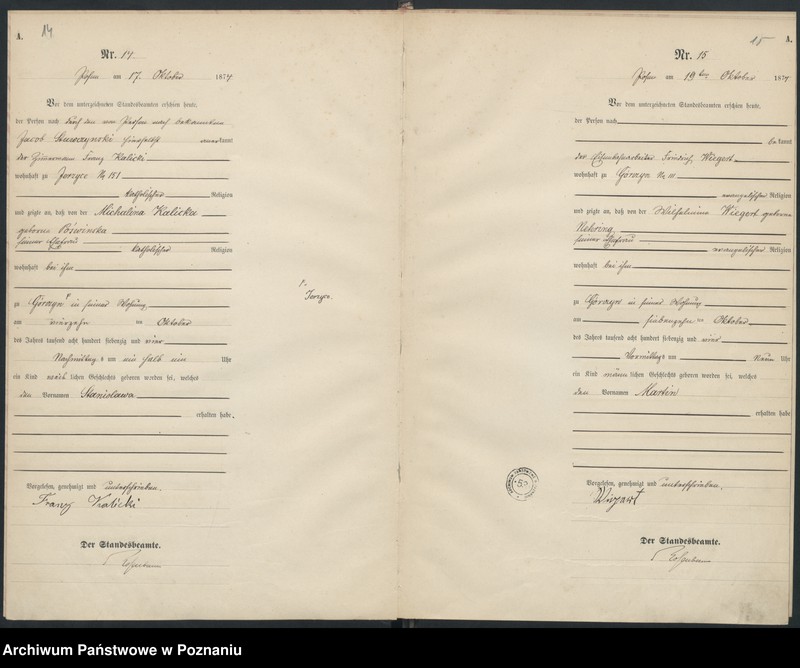 14
A.
Nr. 14.
Posen am 17. Oktober 1874
Vor dem unterzeichneten Standesbeamten erschien heute,
der Person nach durch den von Person nach bekannten
Jacob anerkannt
der Zimmermann Franz Kalicki
wohnhaft zu Jerzyce No 151
katholischer Religion
und zeigte an, daß von der Michalina Kalicka
geborene
seiner Ehefrau
katholischer Religion
wohnhaft bei ihm
zu Górczyn in seiner Wohnung
am vierzehn ten Oktober
des Jahres tausend acht hundert siebenzig und vier
Nachmittags um ein halb ein Uhr
ein Kind weiblichen Geschlechts geboren worden sei, welches
den Vornamen Stanislawa
erhalten habe.
Vorgelesen, genehmigt und unterschrieben.
Franz Kalicki
Der Standesbeamte.
Jerzyce.
15
A.
Nr. 15
Posen am 19ten Oktober 1874
Vor dem unterzeichneten Standesbeamten erschien heute,
der Person nach
bekannt
der Friedrich Wiegert
wohnhaft zu Górczyn No
evangelischer Religion
und zeigte an, daß von der Wilhelmine Wiegert geborene
Nehring
seiner Ehefrau
evangelischer Religion
wohnhaft bei ihm
zu Górczyn in seiner Wohnung
am siebenzehn ten Oktober
des Jahres tausend acht hundert siebenzig und vier
Vormittags um Neun Uhr
ein Kind männlichen Geschlechts geboren worden sei, welches
den Vornamen Martin
erhalten habe.
Vorgelesen, genehmigt und unterschrieben.
Der Standesbeamte.
Archiwum Państwowe w Poznaniu